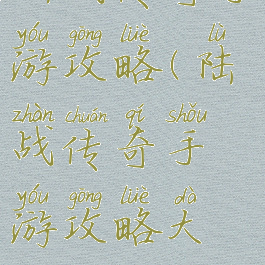 yóu gōng lüè lù
游攻略(陆
zhàn chuán qí shǒu
战传奇手
yóu gōng lüè dà
游攻略大